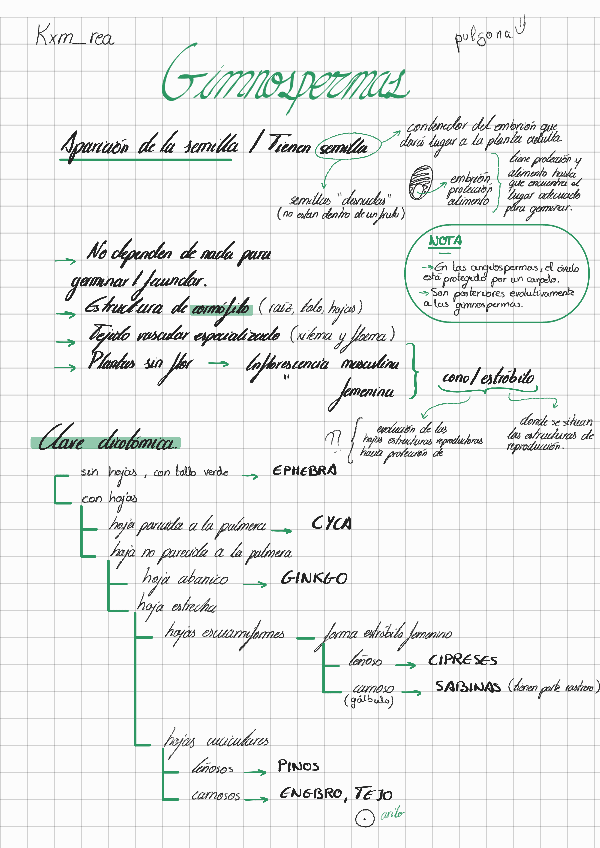 Kxm_rea
pulgona
Gimnospermas
Aparición de la semilla / Tienen semilla
contenedor del embrión que
dará lugar a la planta adulta.
embrión
protección
alimento
tiene protección y
alimento hasta
que encuentra el
lugar adecuado
para germinar.
semillas "desnudas"
(no estan dentro de un fruto)
NOTA
→ En las angiospermas, el óvulo
está protegido por un carpelo.
→ Son posteriores evolutivamente
a las gimnospermas.
→ No dependen de nada para
germinar / fecundar.
→ Estructura de cormófito (raíz, tallo, hojas)
→ Tejido vascular especializado (xilema y floema)
→ Plantas sin flor → Inflorescencia masculina
" femenina
cono / estróbilo
?? evolución de las
hojas estructuras reproductoras
hasta protección de
donde se situan
las estructuras de
reproducción.
Clave dicotómica.
sin hojas, con tallo verde → EPHEBRA
con hojas
hoja parecida a la palmera → CYCA
hoja no parecida a la palmera
hoja abanico → GINKGO
hoja estrecha
hojas escuamiformes — forma estróbilo femenino
leñoso → CIPRESES
carnoso → SABINAS (tienen porte rastrero)
(gálbulo)
hojas aciculares
leñosos → PINOS
carnosos → ENEBRO, TEJO
arilo